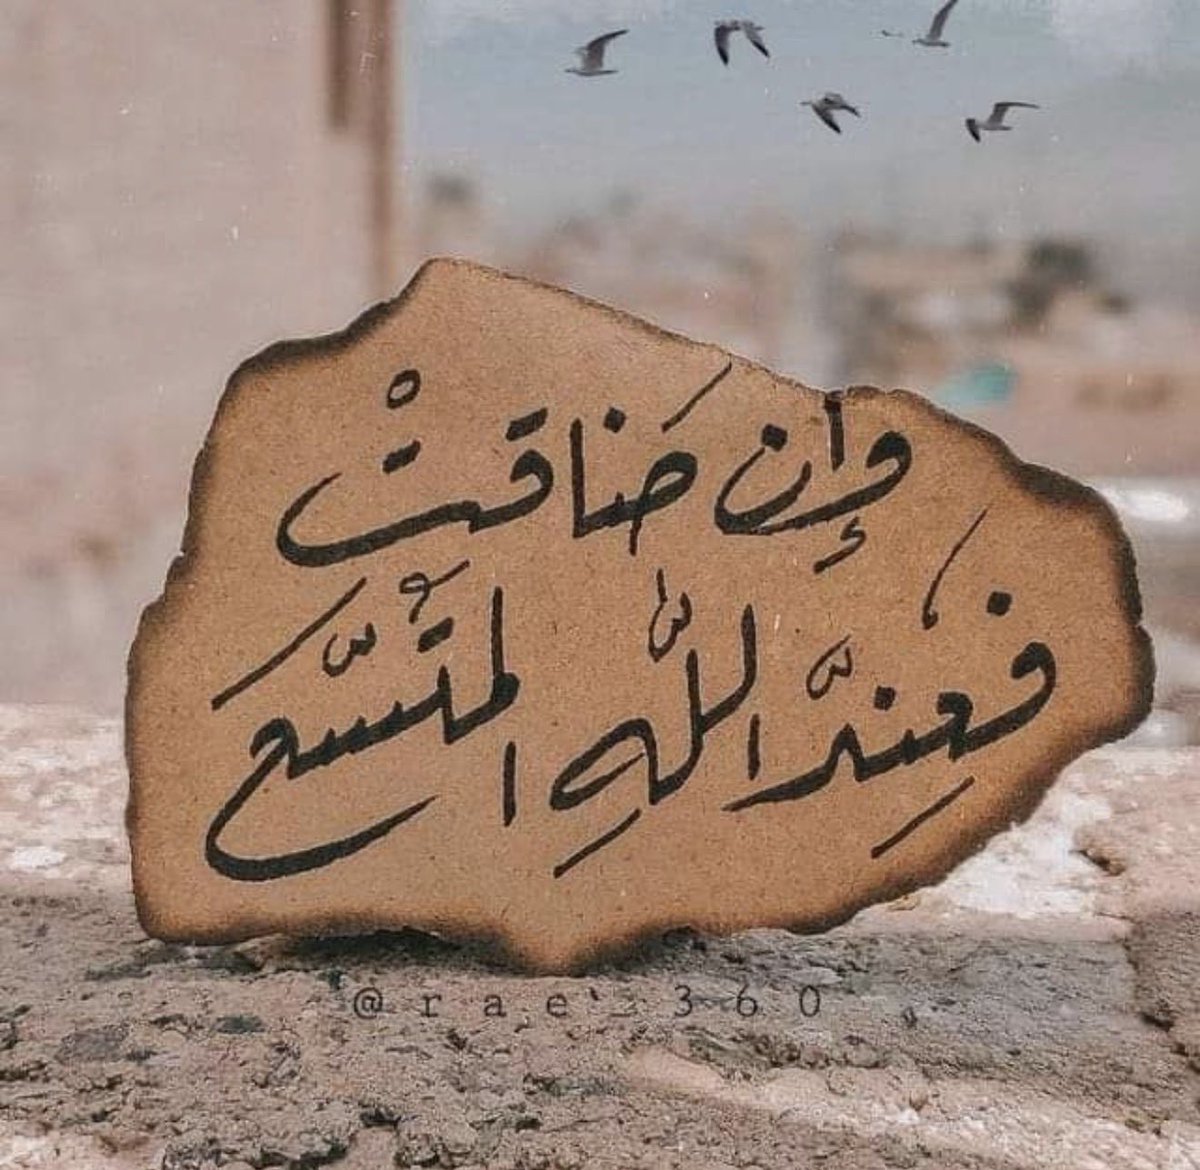 وإن ضاقتْ
فَعِندَّ اللّهِ المتْسَّع
@rae_360